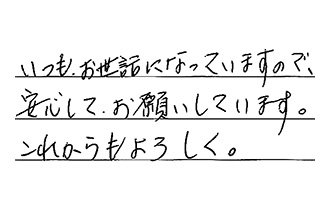 いつも、お世話になっていますので、
安心して、お願いしています。
これからもよろしく。